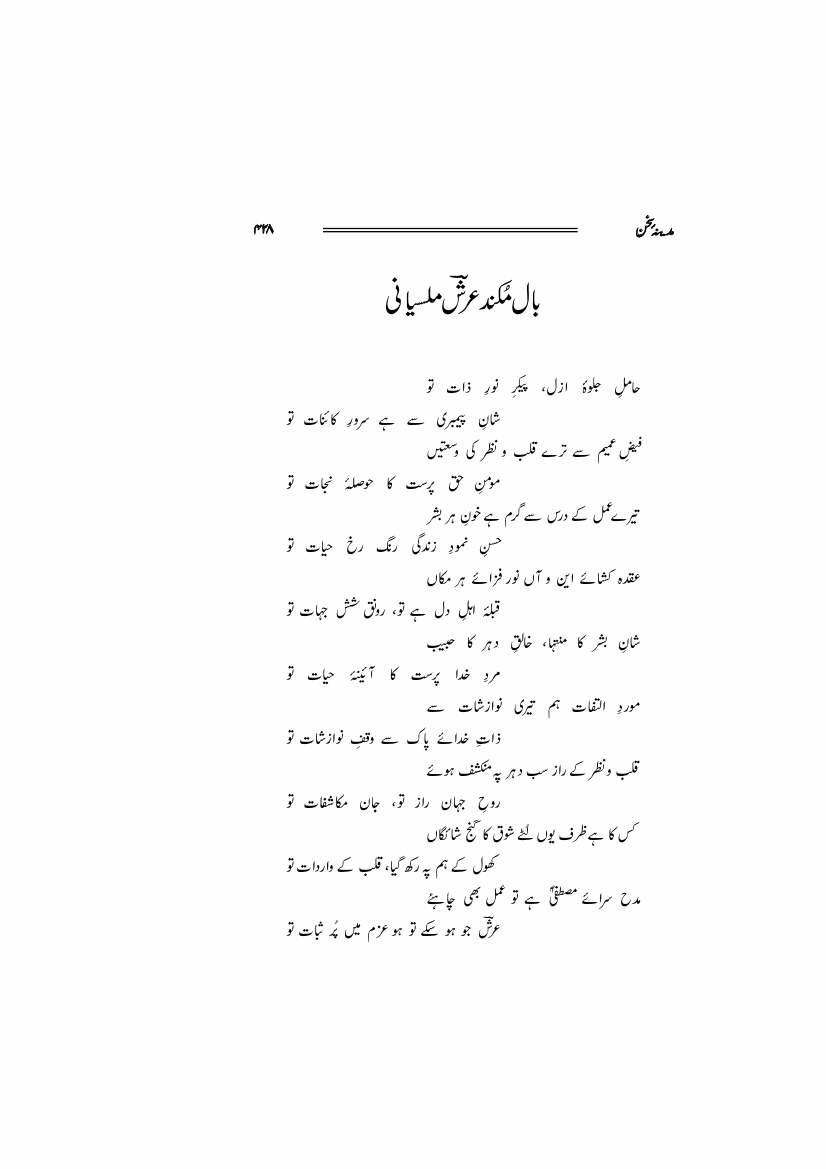 مدینۂ سخن ۴۲۸
بال مُکند عرشؔ ملسیانی
حاملِ جلوۂ ازل، پیکرِ نورِ ذات تو
شانِ پیمبری سے ہے سرورِ کائنات تو
فیضِ عمیم سے ترے قلب و نظر کی وسعتیں
مومنِ حق پرست کا حوصلۂ نجات تو
تیرے عمل کے درس سے گرم ہے خونِ ہر بشر
حسنِ نمودِ زندگی رنگ رخ حیات تو
عقدہ کشائے این و آں نور فزائے ہر مکاں
قبلۂ اہلِ دل ہے تو، رونق شش جہات تو
شانِ بشر کا منتہا، خالقِ دہر کا حبیب
مردِ خدا پرست کا آئینۂ حیات تو
موردِ التفات ہم تیری نوازشات سے
ذاتِ خدائے پاک سے وقفِ نوازشات تو
قلب و نظر کے راز سب دہر پہ منکشف ہوئے
روحِ جہان راز تو، جان مکاشفات تو
کس کا ہے ظرف یوں لُٹے شوق کا گنج شائگاں
کھول کے ہم پہ رکھ گیا، قلب کے واردات تو
مدح سرائے مصطفیٰؐ ہے تو عمل بھی چاہئے
عرشؔ جو ہو سکے تو ہو عزم میں پُر ثبات تو